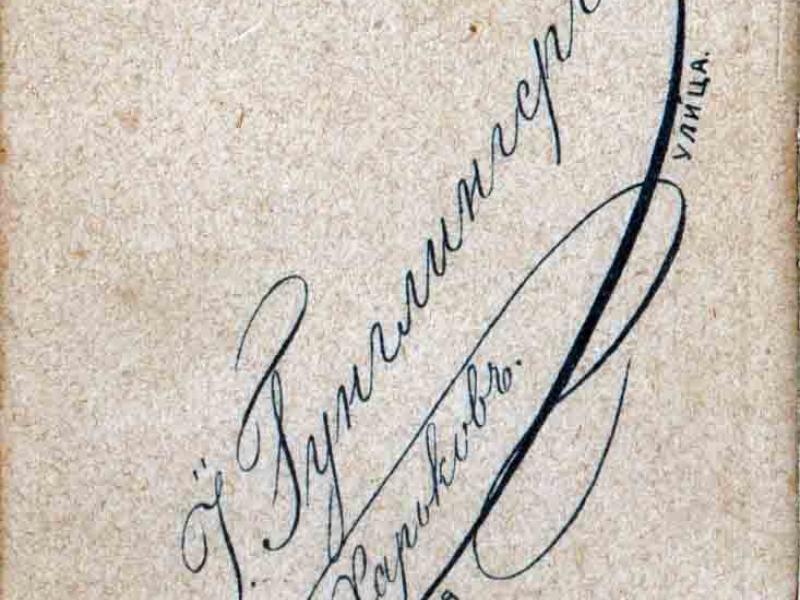 Ї. Рунглингеръ
Харьковъ.
УЛИЦА.